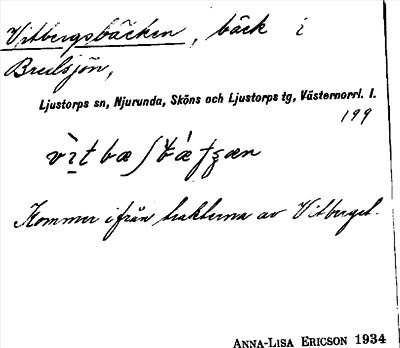 Vitbergsbäcken, bäck i
Breilsjön,
Ljustorps sn, Njurunda, Sköns och Ljustorps tg, Västernorrl. l.
199
Kommer ifrån trakterna av Vitberget.
ANNA-LISA ERICSON 1934